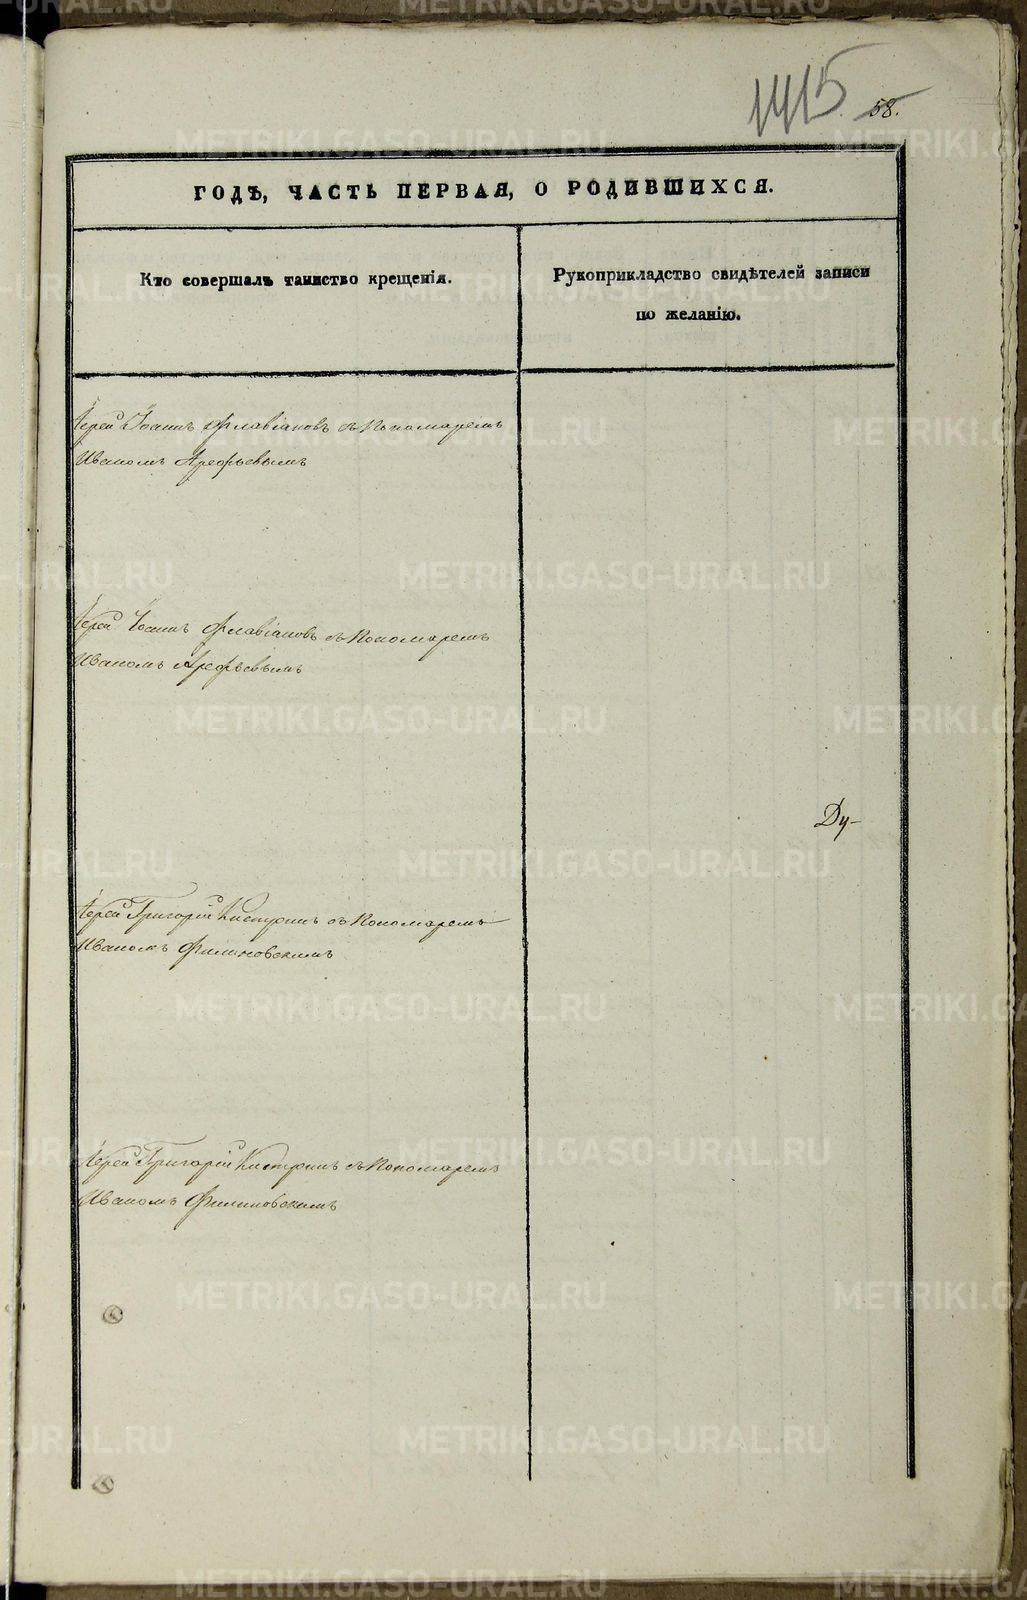 1415
58.
ГОДЪ, ЧАСТЬ ПЕРВАЯ, О РОДИВШИХСЯ.
Кто совершалъ таинство крещенія.
Рукоприкладство свидѣтелей записи
по желанію.
Іерей Іоаннъ Флавіановъ съ Пономаремъ
Иваномъ Арефьевымъ
Іерей Іоаннъ Флавіановъ съ Пономаремъ
Иваномъ Арефьевымъ
Ду-
Іерей Григорій съ Пономаремъ
Иваномъ Филиповскимъ
Іерей Григорій съ Пономаремъ
Иваномъ Филиповскимъ
METRIKI.GASO-URAL.RU